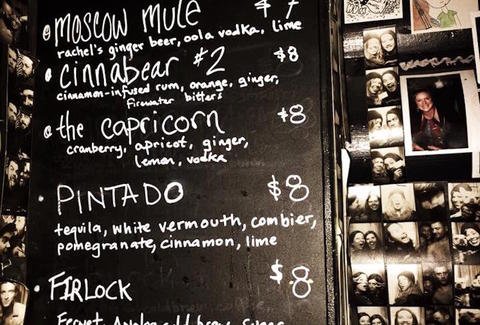 moscow mule
rachel's ginger beer, oola vodka, lime
cinnabear #2 $8
cinnamon-infused rum, orange, ginger,
firewater bitters
the capricorn $8
cranberry, apricot, ginger,
lemon, vodka
PINTADO $8
tequila, white vermouth, combier,
pomegranate, cinnamon, lime
FIRLOCK $8